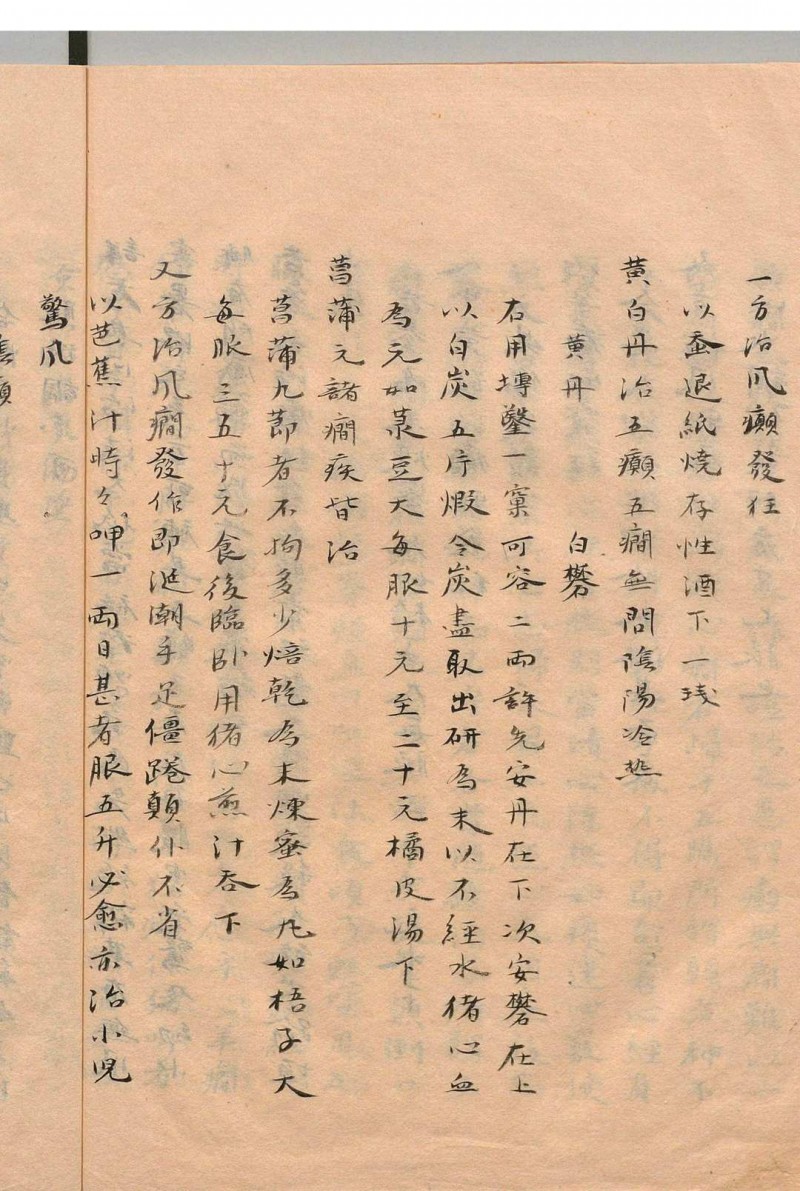 一方治風癲發狂
以蚕退紙燒存性酒下一錢
黄白丹治五癲五癇無問陰陽冷熱
黄丹　白礬
右用塼鑿一窠可容二両許先安丹在下次安礬在上
以白炭五斤煅令炭盡取出研為末以不經水猪心血
為元如菉豆大每服十元至二十元橘皮湯下
菖蒲元諸癇疾皆治
菖蒲九莭者不拘多少焙乾為末煉蜜為丸如梧子大
每服三五十元食後臨卧用猪心煎汁吞下
又方治風癇發作即涎潮手足僵踡顛仆不省
以芭蕉汁時々呷一両日甚者服五升必愈亦治小児
驚風